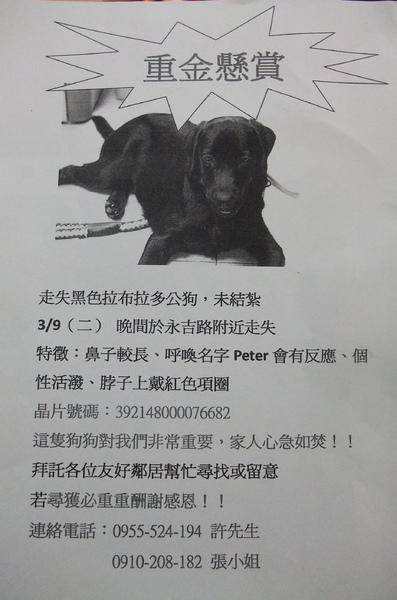 重金懸賞
走失黑色拉布拉多公狗，未結紮
3/9（二） 晚間於永吉路附近走失
特徵：鼻子較長、呼喚名字 Peter 會有反應、個
性活潑、脖子上戴紅色項圈
晶片號碼：392148000076682
這隻狗狗對我們非常重要，家人心急如焚！！
拜託各位友好鄰居幫忙尋找或留意
若尋獲必重重酬謝感恩！！
連絡電話：0955-524-194 許先生
0910-208-182 張小姐